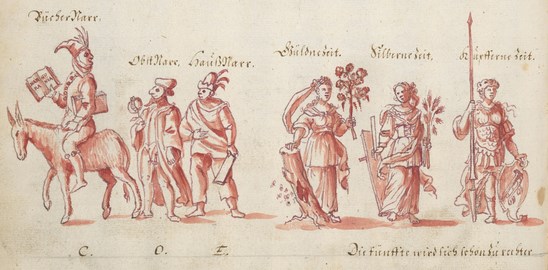 Bücher Narr.
Obst Narr. Hauß Narr.
Guldne Zeit. Silberne Zeit. Kupfferne Zeit.
C. O. E. Die fünffte wird sich schon zu rechter